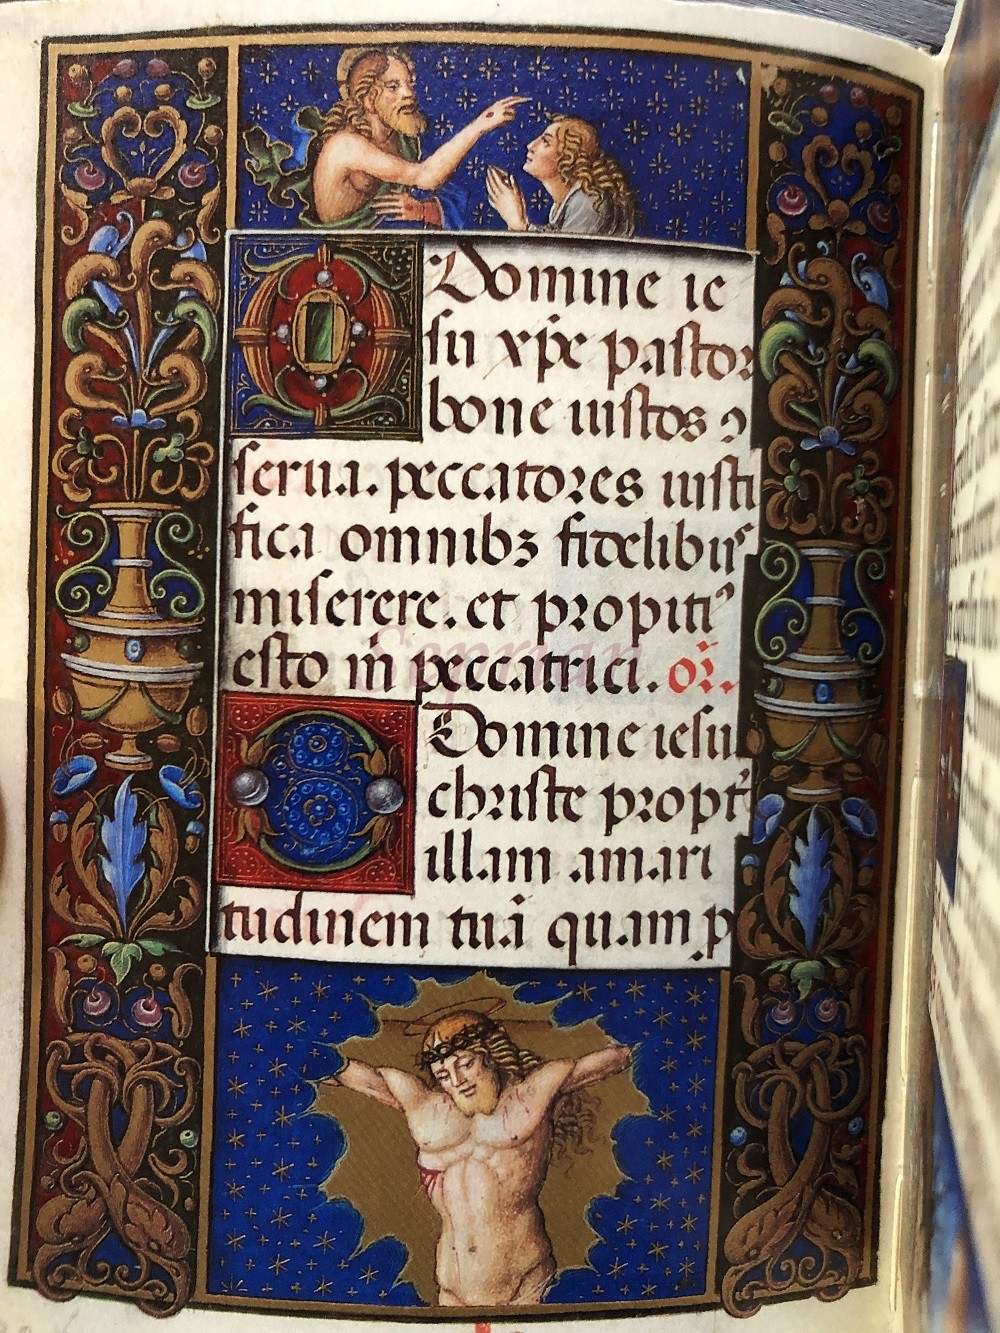 O Domine ie
su xp̄e pastor
bone iustos ꝯ
serua. peccatores iusti
fica omnibꝫ fidelibus
miserere. et propitiꝰ
esto m̄ peccatrici. or̄.
O Domine iesu
christe propt̄
illam amari
tudinem tuā quam ꝓ